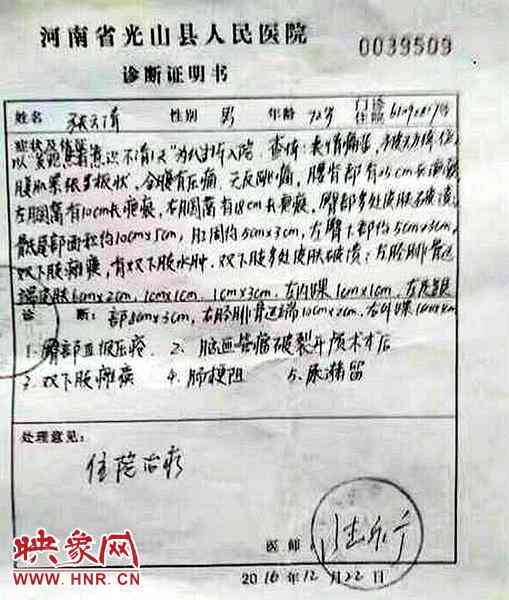 河南省光山县人民医院
0039509
诊断证明书
姓名 性别 男 年龄 72岁 门诊
住院
症状及体征
以 意识不清 为代诉入院 查体
腹肌紧张呈板状，全腹有压痛，无反跳痛，腰背部有25cm长
左胭窝有10cm长疤痕，右胭窝有18cm长疤痕，臀部多处皮肤破溃
骶尾部面积约10cm×5cm，肛周约5cm×3cm，左臀下部约5cm×3cm
双下肢瘫痪，有双下肢水肿，双下肢多处皮肤破溃：右胫腓骨远
端皮肤6cm×2cm，1cm×1cm，1cm×3cm，左内踝1cm×1cm，左足跟
诊 断： 部8cm×3cm，右胫腓骨近端10cm×2cm，右外踝
1. 臀部Ⅲ级压疮 2. 脑血管瘤破裂开颅术后
3. 双下肢瘫痪 4. 肠梗阻 5. 尿潴留
处理意见：
住院治疗
医师
2016年12月22日
映象网
WWW.HNR.CN